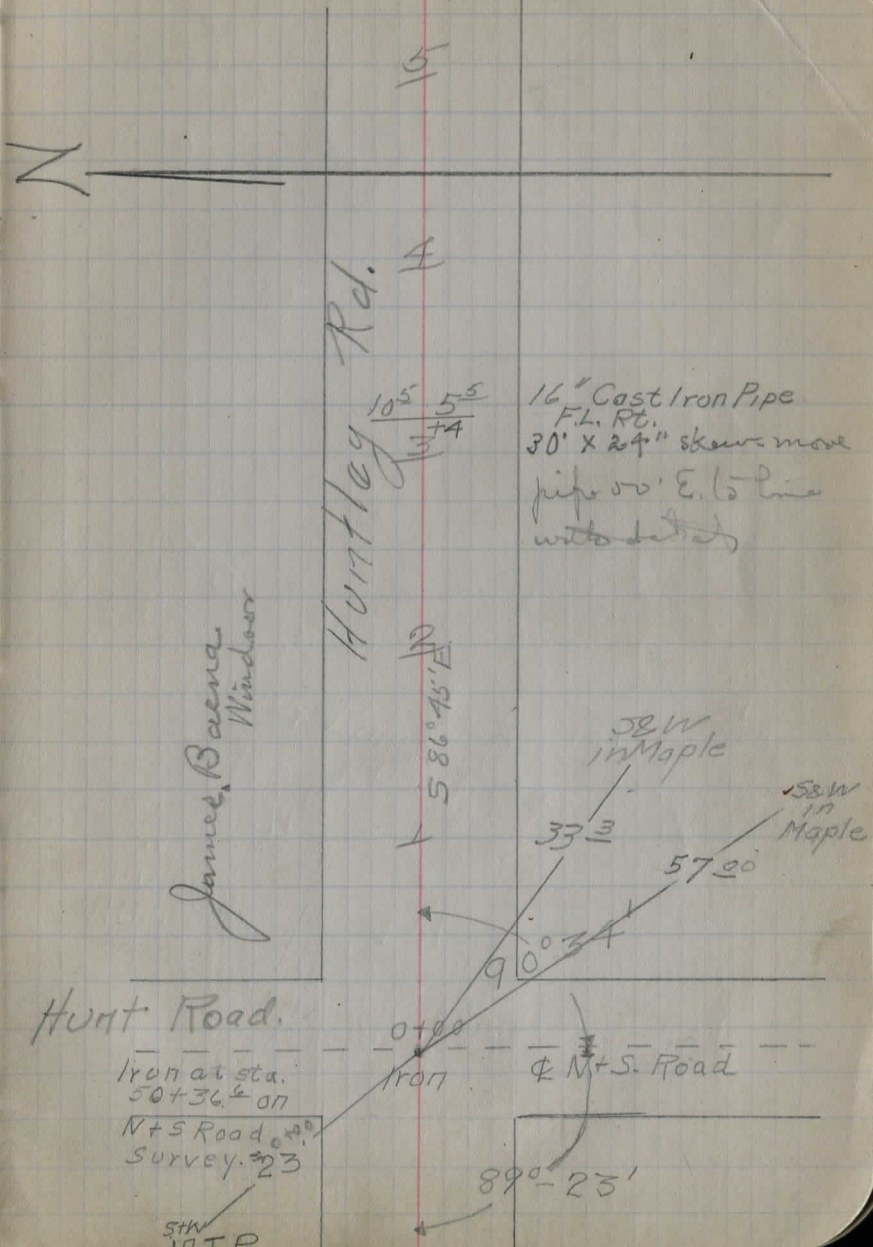 15
N
14
Huntley Rd.
10⁵ 5⁵
13 +4
16" Cast Iron Pipe
F.L. Rt.
30' X 24" skew move
pipe 50' E. to line
12
S 86° 45' E
James Baema
Windsor
S&W
in Maple
33 3
S&W
in
Maple
57 00
1
90° 34'
Hunt Road.
0+00
Iron
℄ N+S. Road
Iron at sta.
50+36.6 on
N+S Road
Survey.
23
89°-23'
S+W
in T.P.